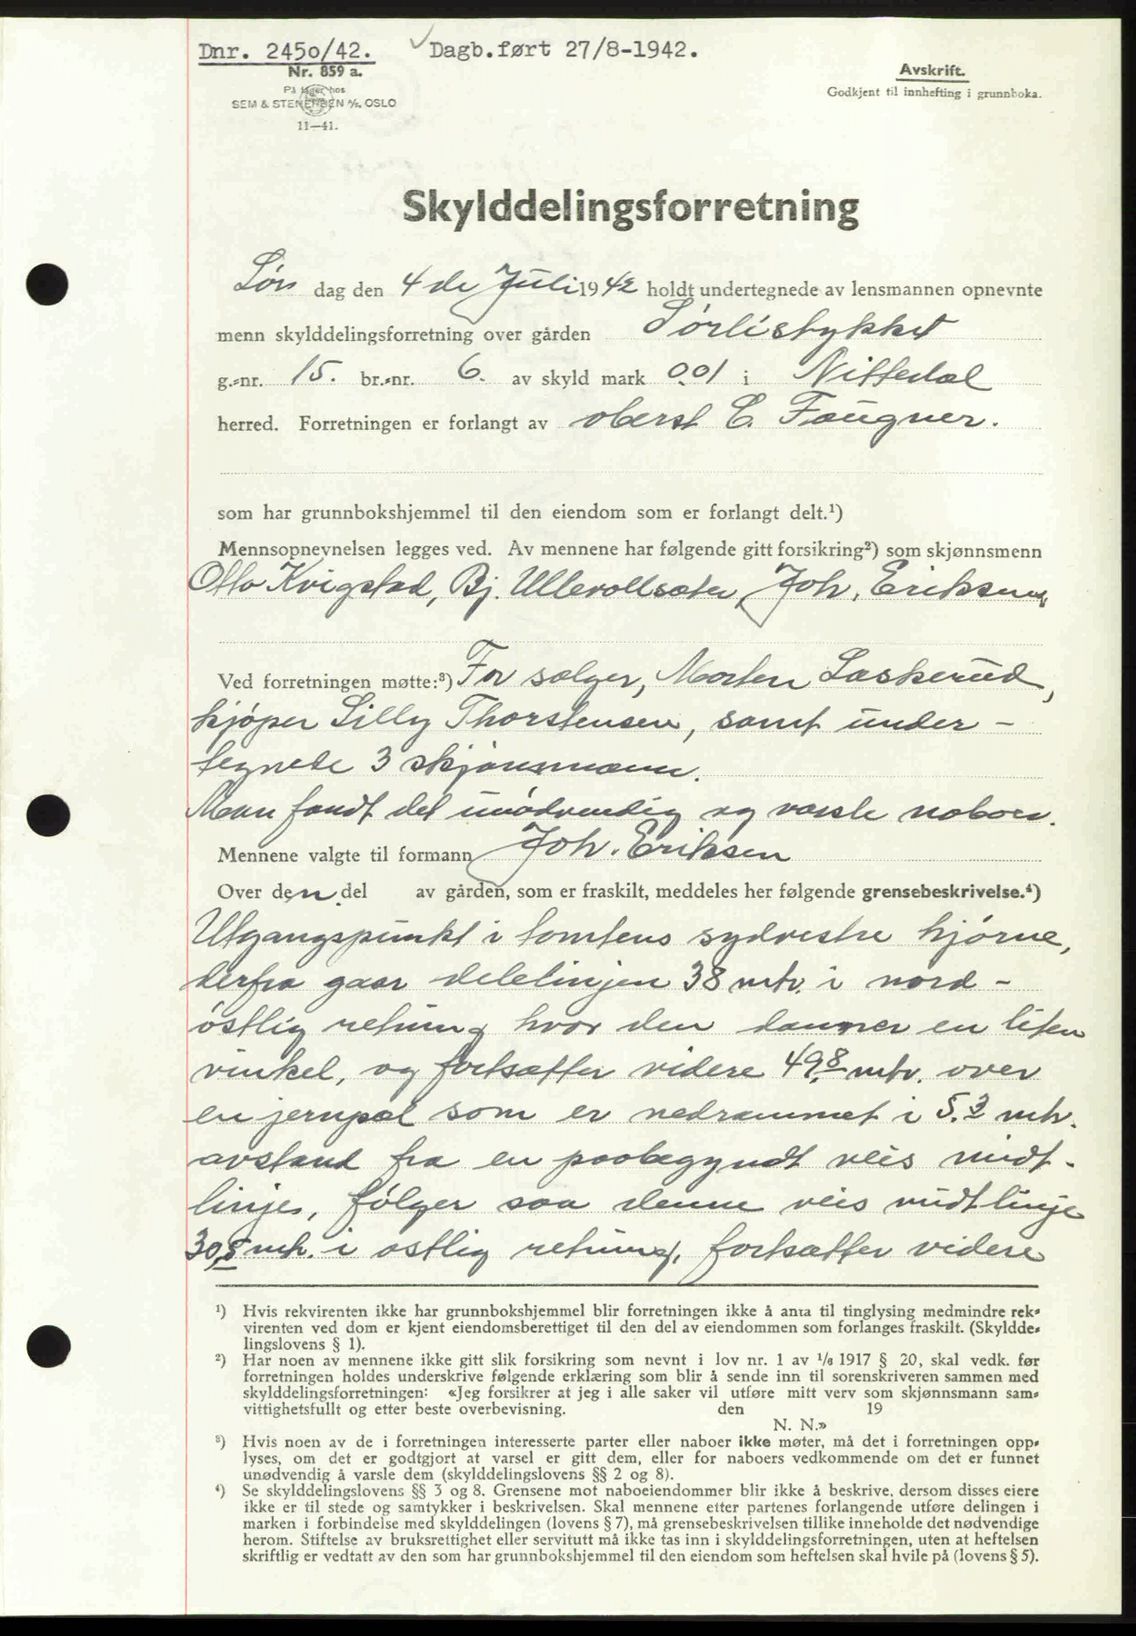 Dnr. 2450/42. ✓ Dagb.ført 27/8-1942.
Nr. 859 a.
På lager hos
SEM & STENERSEN A/S, OSLO
11—41.
Avskrift.
Godkjent til innhefting i grunnboka.
Skylddelingsforretning
Løv dag den 4 de Juli 1942 holdt undertegnede av lensmannen opnevnte
menn skylddelingsforretning over gården Sørlistykket
g.-nr. 15. br.-nr. 6. av skyld mark 0.01 i Nittedal
herred. Forretningen er forlangt av oberst C. Fougner.
som har grunnbokshjemmel til den eiendom som er forlangt delt.¹)
Mennsopnevnelsen legges ved. Av mennene har følgende gitt forsikring²) som skjønnsmenn
Otto Kvigstad, Bj. Ullevollsæter, Joh. Eriksen
Ved forretningen møtte:³) For sælger, Morten Laskerud,
kjøper Lilly Thorstensen, samt under-
tegnede 3 skjønsmænn.
Man fandt det unødvendig og varsle naboer.
Mennene valgte til formann Joh. Eriksen
Over den del av gården, som er fraskilt, meddeles her følgende grensebeskrivelse.⁴)
Utgangspunkt i tomtens sydvestre hjørne,
derfra gaar delelinjen 38 mtr. i nord-
østlig retning hvor den danner en liten
vinkel, og fortsætter videre 49,8 mtr. over
en jernpæl som er nedrammet i 5.3 mtr.
avstand fra en paabegyndt veis midt-
linje, følger saa denne veis midtlinje
30,8 mtr. i østlig retning, fortsætter videre
¹) Hvis rekvirenten ikke har grunnbokshjemmel blir forretningen ikke å anta til tinglysing medmindre rek-
virenten ved dom er kjent eiendomsberettiget til den del av eiendommen som forlanges fraskilt. (Skyldde-
lingslovens § 1).
²) Har noen av mennene ikke gitt slik forsikring som nevnt i lov nr. 1 av 1/6 1917 § 20, skal vedk. før
forretningen holdes underskrive følgende erklæring som blir å sende inn til sorenskriveren sammen med
skylddelingsforretningen: «Jeg forsikrer at jeg i alle saker vil utføre mitt verv som skjønnsmann sam-
vittighetsfullt og etter beste overbevisning. den 19
N. N.»
³) Hvis noen av de i forretningen interesserte parter eller naboer ikke møter, må det i forretningen opp-
lyses, om det er godtgjort at varsel er gitt dem, eller for naboers vedkommende om det er funnet
unødvendig å varsle dem (skylddelingslovens §§ 2 og 8).
⁴) Se skylddelingslovens §§ 3 og 8. Grensene mot naboeiendommer blir ikke å beskrive, dersom disses eiere
ikke er til stede og samtykker i beskrivelsen. Skal mennene etter partenes forlangende utføre delingen i
marken i forbindelse med skylddelingen (lovens § 7), må grensebeskrivelsen tillike inneholde det nødvendige
herom. Stiftelse av bruksrettighet eller servitutt må ikke tas inn i skylddelingsforretningen, uten at heftelsen
skriftlig er vedtatt av den som har grunnbokshjemmel til den eiendom som heftelsen skal hvile på (lovens § 5).